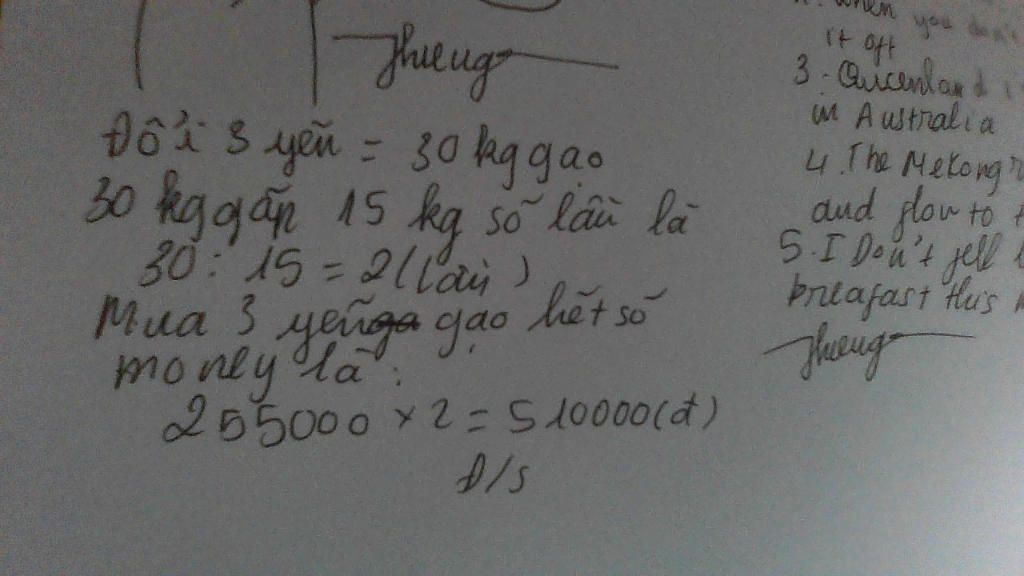 Jhueng
Đổi 3 yến = 30 kg gạo
30 kg gấp 15 kg số lần là
30 : 15 = 2 (lần)
Mua 3 yến gạo hết số
money là :
255000 × 2 = 510000 (đ)
Đ/s
when you don't
it off
3. Queenland
in Australia
4. The Mekong
and flow to
5. I Don't fell
breafast this
Jhueng